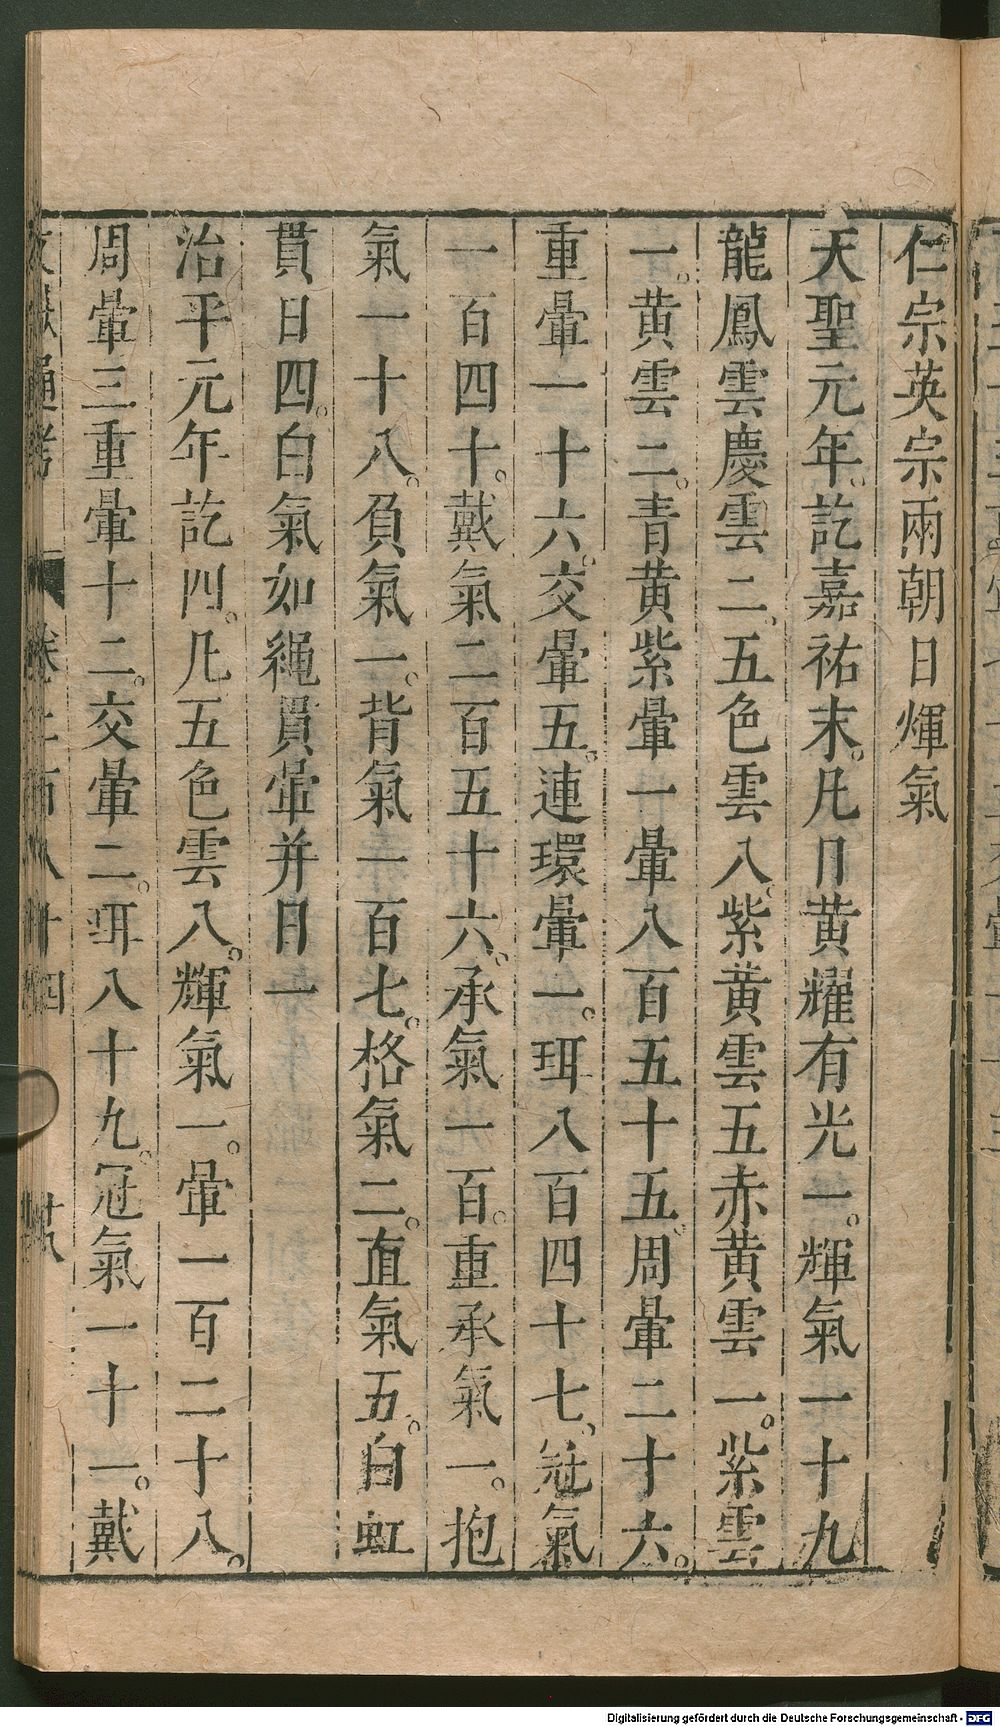 仁宗英宗兩朝日煇氣
天聖元年。訖嘉祐末。凡日黃耀有光一。輝氣一十九
龍鳳雲慶雲二。五色雲八。紫黃雲五赤黃雲一。紫雲
一。黃雲二。青黃紫暈一暈八百五十五。周暈二十六。
重暈一十六。交暈五。連環暈一。珥八百四十七。冠氣
一百四十。戴氣二百五十六。承氣一百。重承氣一。抱
氣一十八。負氣一。背氣一百七。格氣二。直氣五。白虹
貫日四。白氣如繩貫暈并日一
治平元年訖四。凡五色雲八。輝氣一。暈一百二十八。
周暈三重暈十二。交暈二。珥八十九。冠氣一十一。戴
文獻通考 卷二百八十四
Digitalisierung gefördert durch die Deutsche Forschungsgemeinschaft - DFG